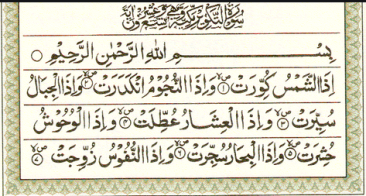 سورة التكوير مكية وهي تسع وعشرون آية
بِسْمِ اللهِ الرَّحْمٰنِ الرَّحِيْمِ
إِذَا الشَّمْسُ كُوِّرَتْ ١ وَإِذَا النُّجُوْمُ انْكَدَرَتْ ٢ وَإِذَا الْجِبَالُ
سُيِّرَتْ ٣ وَإِذَا الْعِشَارُ عُطِّلَتْ ٤ وَإِذَا الْوُحُوْشُ
حُشِرَتْ ٥ وَإِذَا الْبِحَارُ سُجِّرَتْ ٦ وَإِذَا النُّفُوْسُ زُوِّجَتْ ٧